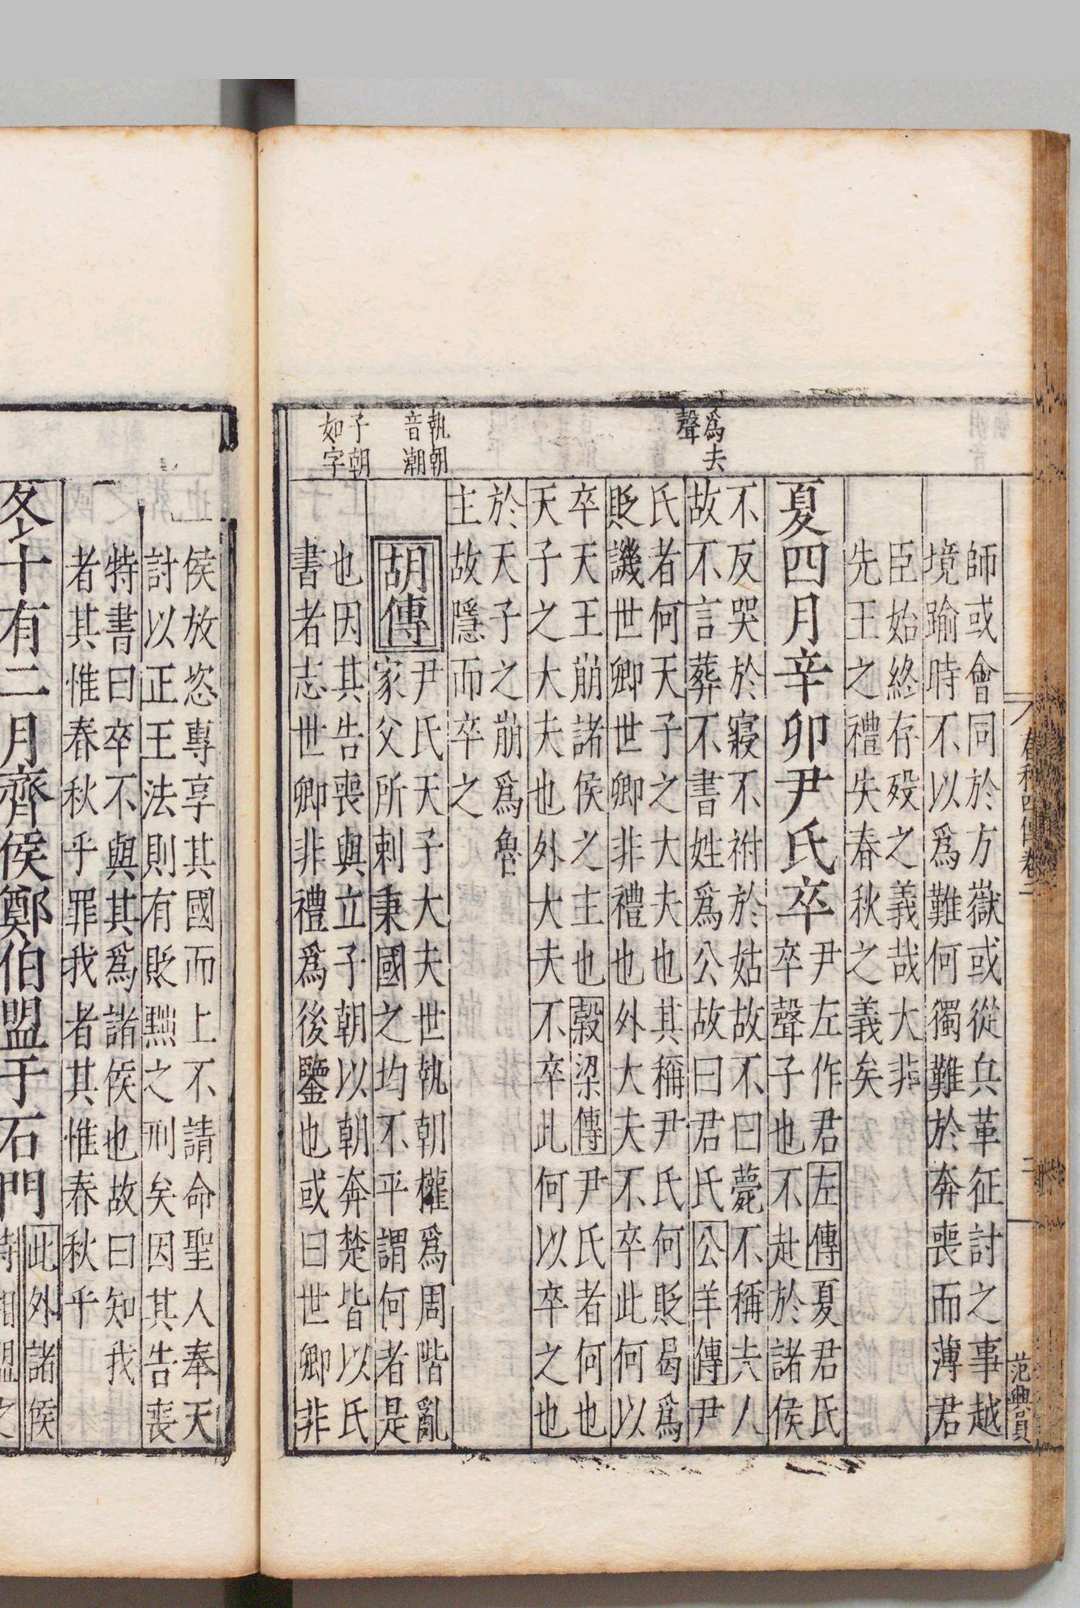 為夫
聲
執朝
音潮
子朝
如字
師或會同於方嶽或從兵革征討之事越
境踰時不以為難何獨難於奔喪而薄君
臣始終存歿之義哉大非
先王之禮失春秋之義矣
夏四月辛卯尹氏卒
尹左作君左傳夏君氏
卒聲子也不赴於諸侯
不反哭於寢不祔於姑故不曰薨不稱夫人
故不言葬不書姓為公故曰君氏公羊傳尹
氏者何天子之大夫也其稱尹氏何貶曷為
貶譏世卿世卿非禮也外大夫不卒此何以
卒天王崩諸侯之主也穀梁傳尹氏者何也
天子之大夫也外大夫不卒此何以卒之也
於天子之崩為魯
主故隱而卒之
胡傳
尹氏天子大夫世執朝權為周階亂
家父所刺秉國之均不平謂何者是
也因其告喪與立子朝以朝奔楚皆以氏
書者志世卿非禮為後鑒也或曰世卿非
春秋四傳卷二
二
范興員
侯放恣專享其國而上不請命聖人奉天
討以正王法則有貶黜之刑矣因其告喪
特書曰卒不與其為諸侯也故曰知我
者其惟春秋乎罪我者其惟春秋乎
冬十有二月齊侯鄭伯盟于石門
此外諸侯
特相盟之